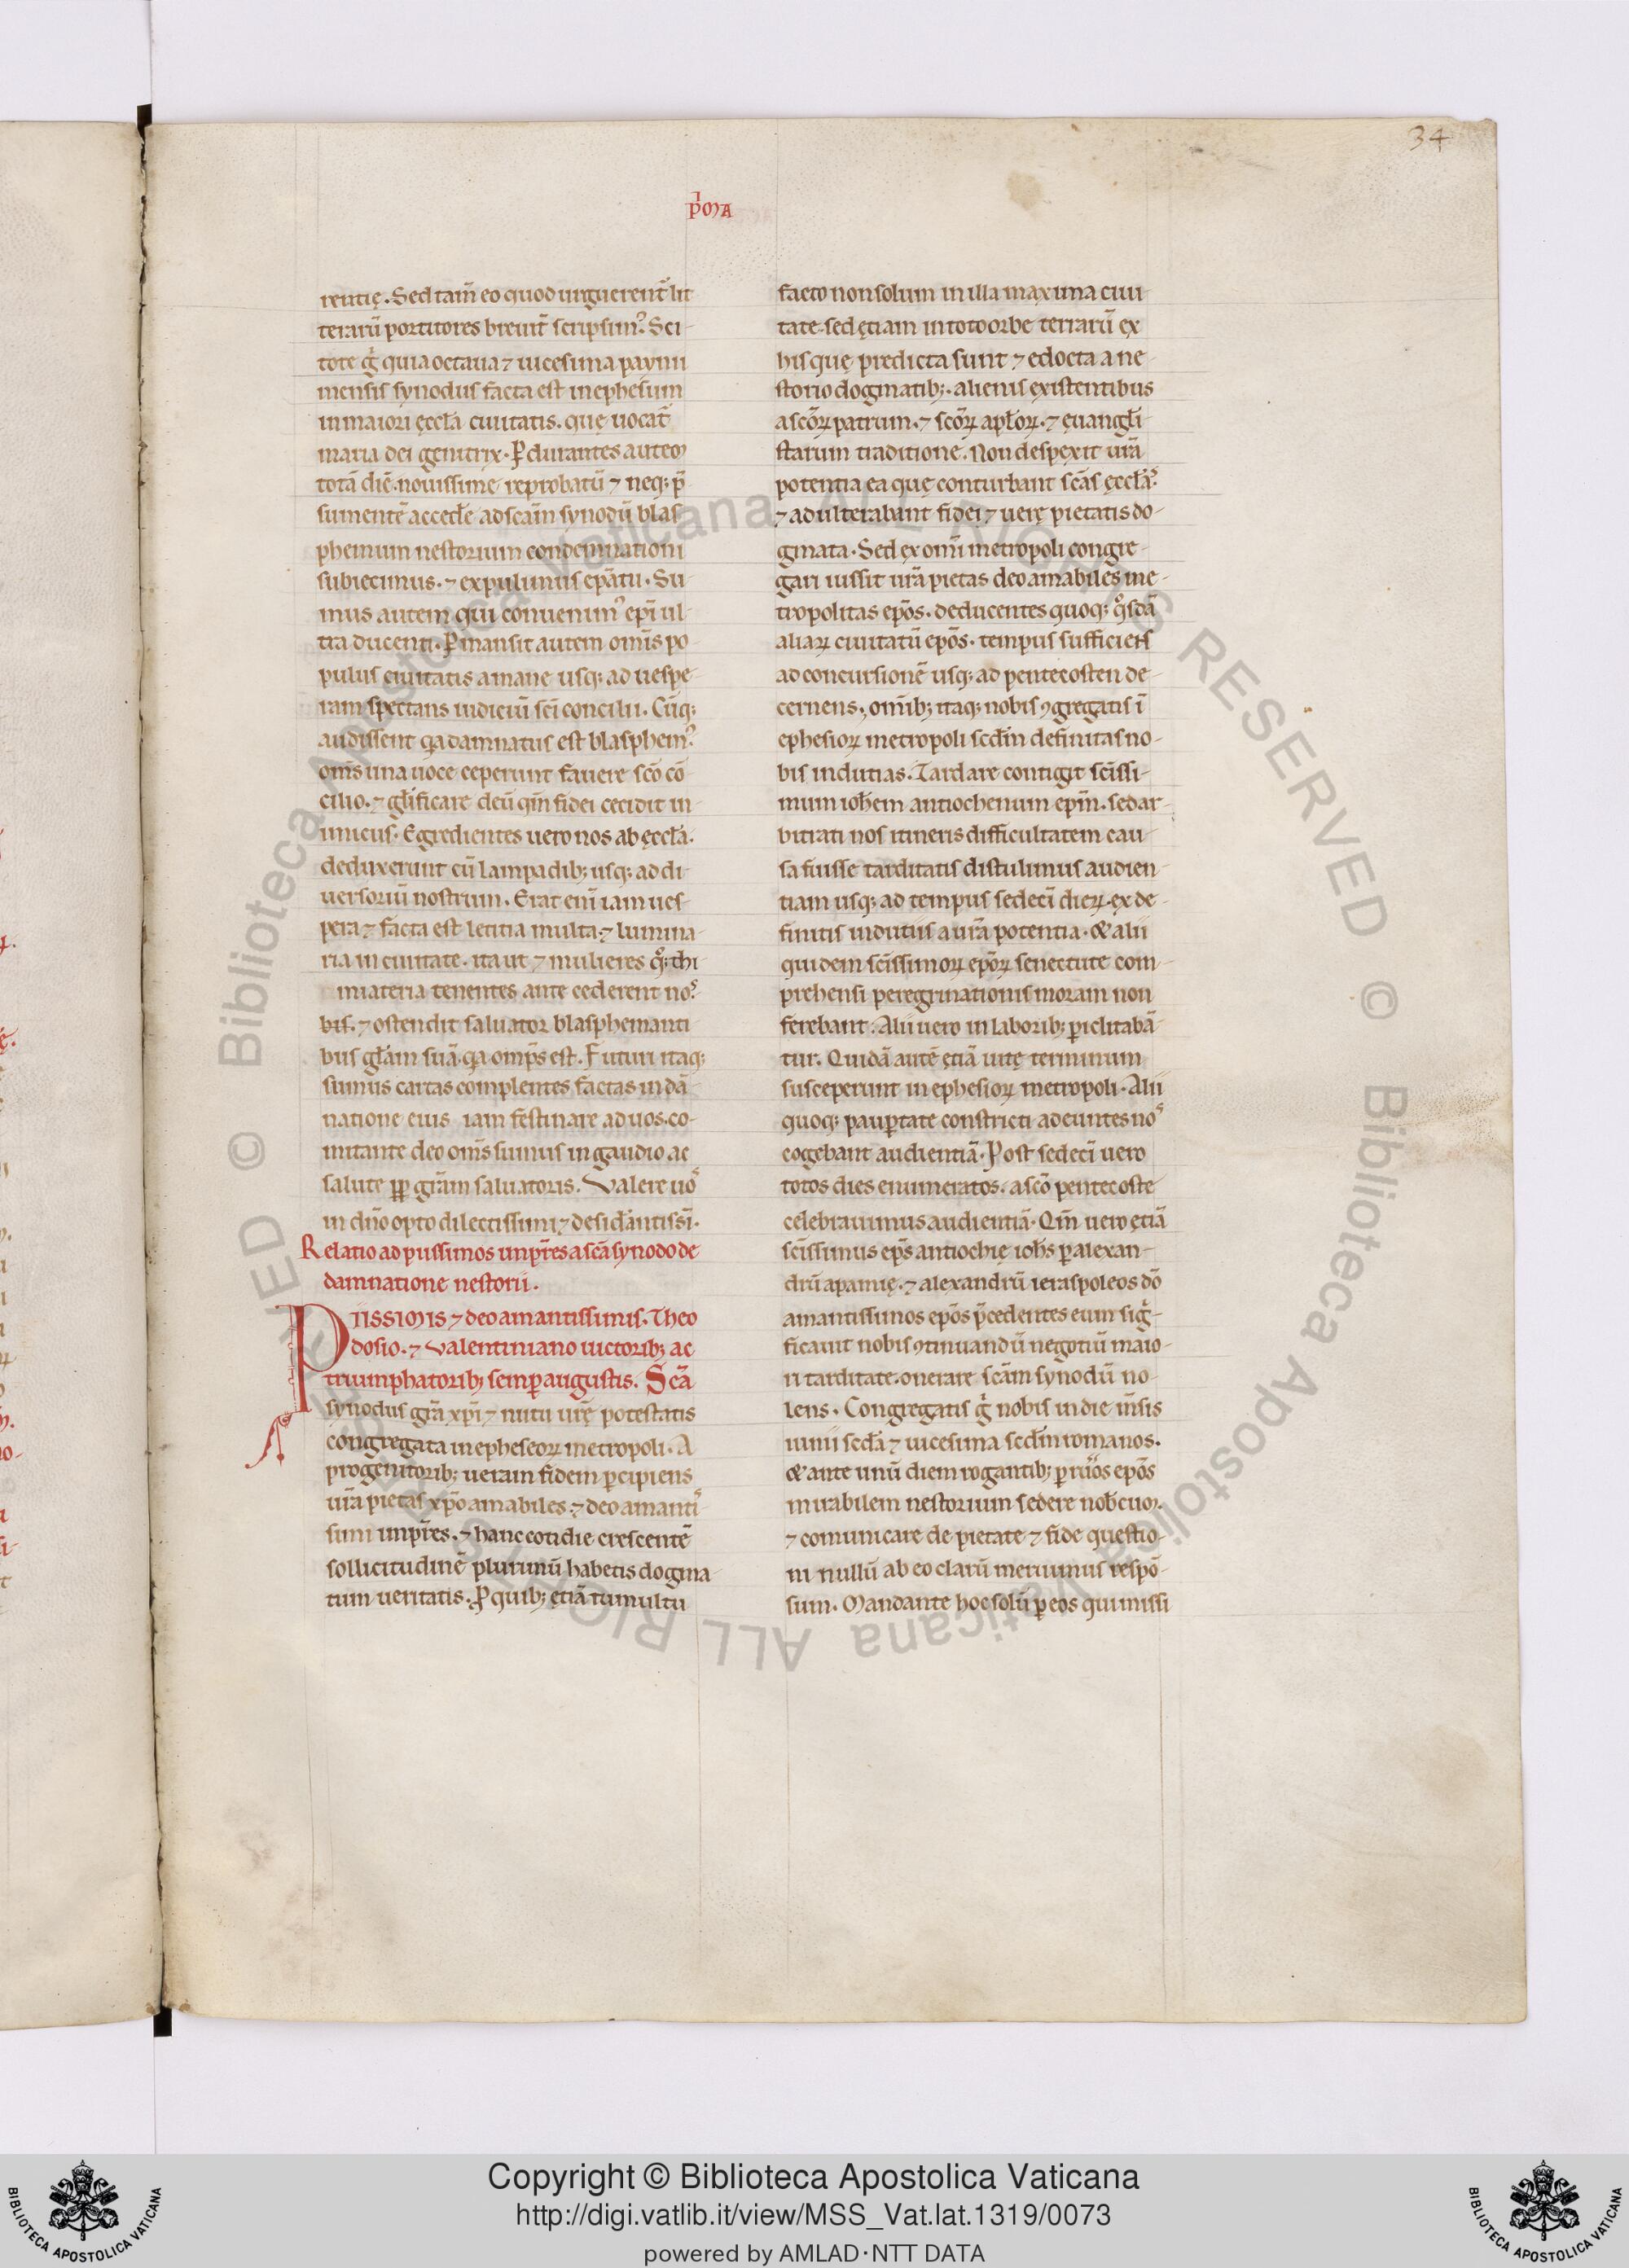 34
p͛ma
rentię. Sed tam̄ eo quod urguerent᷑ lit
terarū portitores breuit᷑ scripsim᷒. Sci-
tote gͥ quia octaua ⁊ uicesima paynni
mensis synodus facta est in ephesum
in maiori ęccl̄a ciuitatis. que uocat᷑
maria dei genitrix. P̱durantes autem
totā diē. nouissime reprobatū ⁊ neq; p̄
sumentē accede᷑ ad scām synodū blas-
phemum nestorium condemnationi
subiecimus. ⁊ expulimus ep̄atu. Su-
mus autem qui conuenim᷒ ep̄i ul-
tra ducenti. P̱mansit autem om̄is po-
pulus ciuitatis a mane usq; ad uespe-
ram spectans iudiciū sc̄i concilii. Cūq;
audissent qa damnatus est blasphem᷒.
om̄s una uoce ceperunt fauere sc̄o cō-
cilio. ⁊ gl̄ificare deū qm̄ fidei cecidit in-
imicus. Egredientes uero nos ab ęccl̄a.
deduxerunt cū lampadib; usq; ad di-
uersoriū nostrum. Erat eni᷑ iam ues-
pera ⁊ facta est letitia multa ⁊ lumina-
ria in ciuitate. ita ut ⁊ mulieres qͦ; thi-
miateria tenentes ante cederent no᷒.
bis. ⁊ ostendit saluator blasphemanti-
bus gl̄am suā. qa omp̄s est. Futuri itaq;
sumus cartas complentes factas in dā-
natione eius iam festinare ad uos. co-
mitante deo om̄s sumus in gaudio ac
salute ꝑp gr̄am saluatoris. Valere uo᷒
in dn̄o opto dilectissimi ⁊ desid̄antissi᷑.
Relatio ad piissimos imp̄res a scā synodo de
damnatione nestorii.
PIISSIMIS ⁊ deo amantissimis. Theo
dosio. ⁊ Valentiniano uictorib; ac
triumphatorib; semꝑ augustis. Scā
synodus gr̄a xp̄i ⁊ nutu ur̄ę potestatis
congregata in epheseoꝝ metropoli. A
progenitorib; ueram fidem ꝑcipiens
ur̄a pietas xp̄o amabiles. ⁊ deo amanti᷒-
simi imp̄res. ⁊ hanc cotidie crescentē
sollicitudinē plurimū habetis dogma-
tum ueritatis. P̱ quib; ętiā tumultu
facto non solum in illa maxima ciui-
tate. sed ętiam in toto orbe terrarū ex
his que predicta sunt ⁊ edocta a ne-
storio dogmatib;. alienis existentibus
a scōꝝ patrum. ⁊ scōꝝ apl̄oꝝ. ⁊ euangl̄i-
starum traditione. Non despexit ur̄a
potentia ea que conturbant scās ęccl̄a᷒.
⁊ adulterabant fidei ⁊ uerę pietatis do-
gmata. Sed ex om̄i metropoli congre-
gari iussit ur̄a pietas deo amabiles me-
tropolitas ep̄os. deducentes quoq; qͦsdā
aliaꝝ ciuitatū ep̄os. tempus sufficiens
ad concursionē usq; ad pentecosten de-
cernens. om̄ib; itaq; nobis ꝯgregatis ī
ephesioꝝ metropoli scd̄m definitas no-
bis indutias. Tardare contigit sc̄issi-
mum ioh̄em antiochenum ep̄m. sed ar-
bitrati nos itineris difficultatem cau-
sa fuisse tarditatis distulimus audien-
tiam usq; ad tempus sedeci᷑ dieꝝ. ex de-
finitis indutiis a ur̄a potentia. & alii
quidem sc̄issimoꝝ ep̄oꝝ senectute com-
prehensi peregrinationis moram non
ferebant. Alii uero in laborib; ꝑiclitabā-
tur. Quidā autē ętiā uitę terminum
susceperunt in ephesioꝝ metropoli. Alii
quoq; pauꝑtate constricti adeuntes no᷒
cogebant audientiā. Post sedeci᷑ uero
totos dies enumeratos. a scō pentecoste
celebrauimus audientiā. Qm̄ uero ętiā
sc̄issimus ep̄s antiochię ioh̄s ꝑ alexan-
drū apamię. ⁊ alexandrū ieraspoleos dō
amantissimos ep̄os p̄cedentes eum sigͥ-
ficauit nobis ꝯtinuandū negotiū maio-
ri tarditate. onerare scām synodū no-
lens. Congregatis gͥ nobis in die m̄sis
iunii scd̄a ⁊ uicesima scd̄m romanos.
& ante unū diem rogantib; ꝑ ep̄os
mirabilem nestorium sedere nob̄cuꝝ.
⁊ comunicare de pietate ⁊ fide questio-
ni nullū ab eo clarū meruimus respō-
sum. Mandante hoc solū ꝑ eos qui missi
Copyright © Biblioteca Apostolica Vaticana
http://digi.vatlib.it/view/MSS_Vat.lat.1319/0073
powered by AMLAD·NTT DATA
BIBLIOTECA APOSTOLICA VATICANA
BIBLIOTECA APOSTOLICA VATICANA
© Biblioteca Apostolica Vaticana ALL RIGHTS RESERVED © Biblioteca Apostolica Vaticana ALL RIGHTS RESERVED